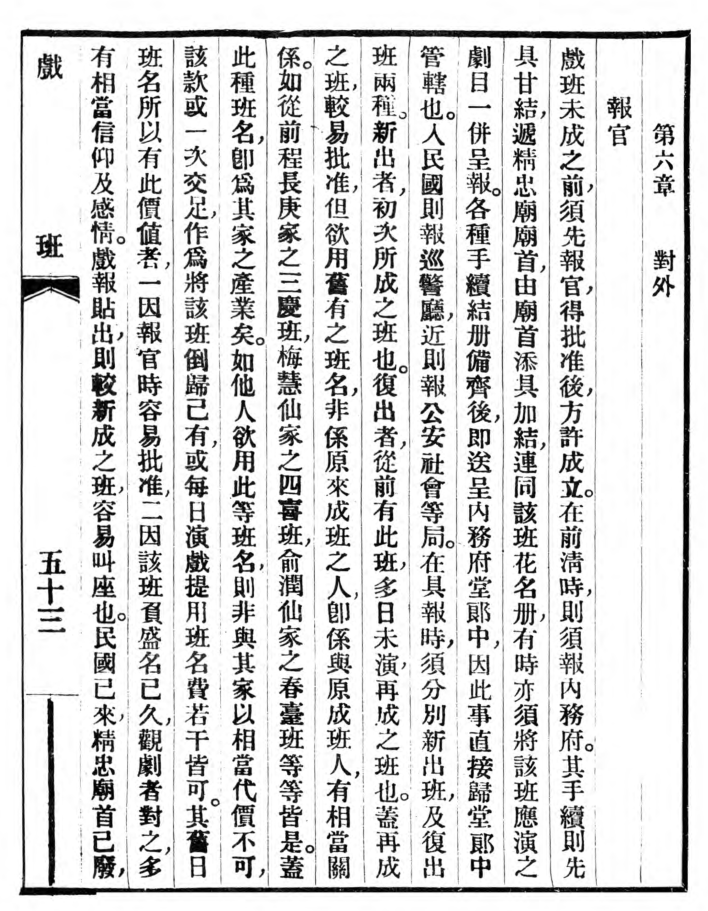 第六章　對外
報官
戲班未成之前，須先報官，得批准後，方許成立。在前清時，則須報內務府。其手續則先
具甘結，遞精忠廟廟首，由廟首添具加結，連同該班花名册，有時亦須將該班應演之
劇目一併呈報。各種手續結册備齊後，即送呈內務府堂郞中，因此事直接歸堂郞中
管轄也。人民國則報巡警廳，近則報公安社會等局。在具報時，須分別新出班，及復出
班兩種。新出者，初次所成之班也。復出者，從前有此班，多日未演再成之班也。蓋再成
之班，較易批准，但欲用舊有之班名，非係原來成班之人，卽係與原成班人，有相當關
係。如從前程長庚家之三慶班，梅慧仙家之四喜班，俞潤仙家之春臺班等等皆是。蓋
此種班名，卽爲其家之產業矣。如他人欲用此等班名，則非與其家以相當代價不可，
該款或一次交足，作爲將該班倒歸己有，或每日演戲提用班名費若干皆可。其舊日
班名所以有此價値者，一因報官時容易批准，二因該班負盛名已久，觀劇者對之，多
有相當信仰及感情。戲報貼出，則較新成之班，容易叫座也。民國已來，精忠廟首已廢，
戲　班　五十三